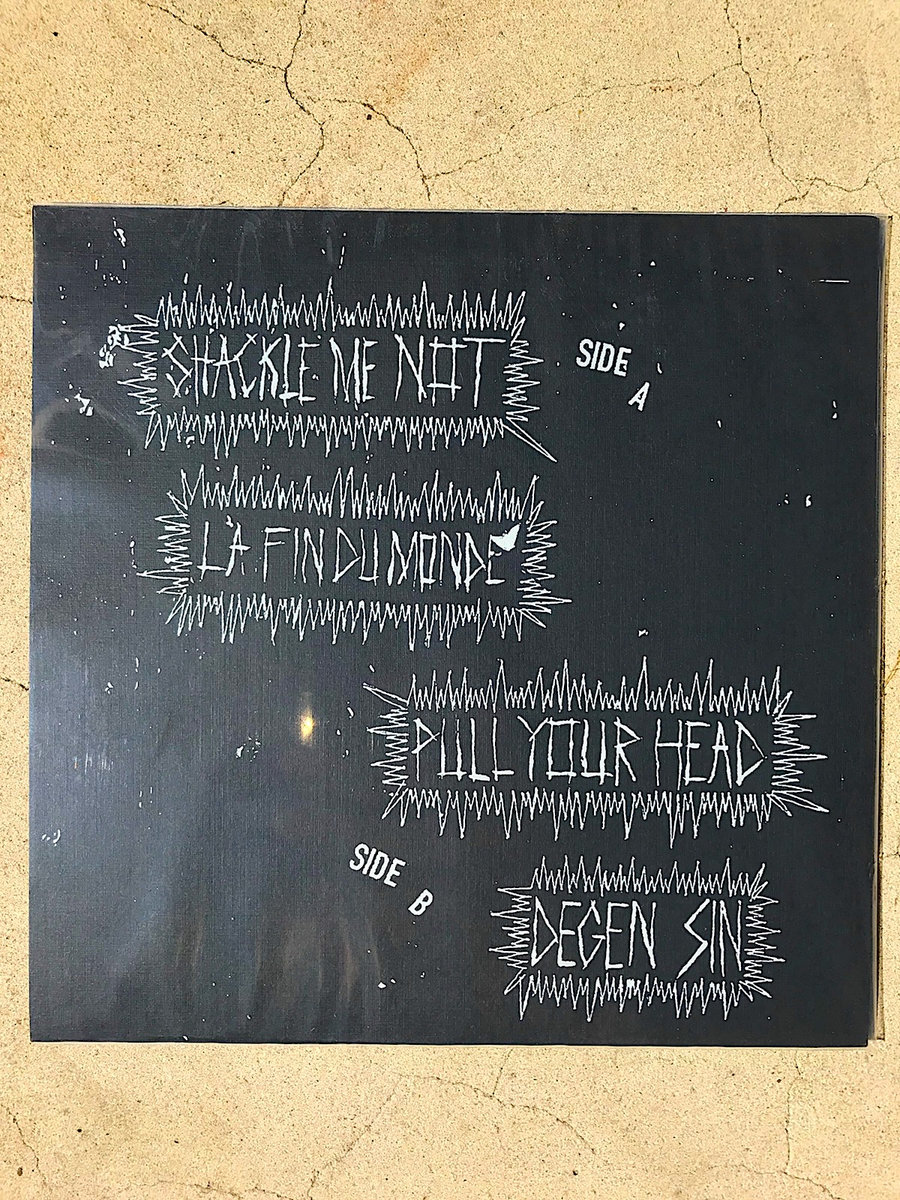 SHACKLE ME NOT
SIDE A
LA FIN DU MONDE
PULL YOUR HEAD
SIDE B
DEGEN SIN